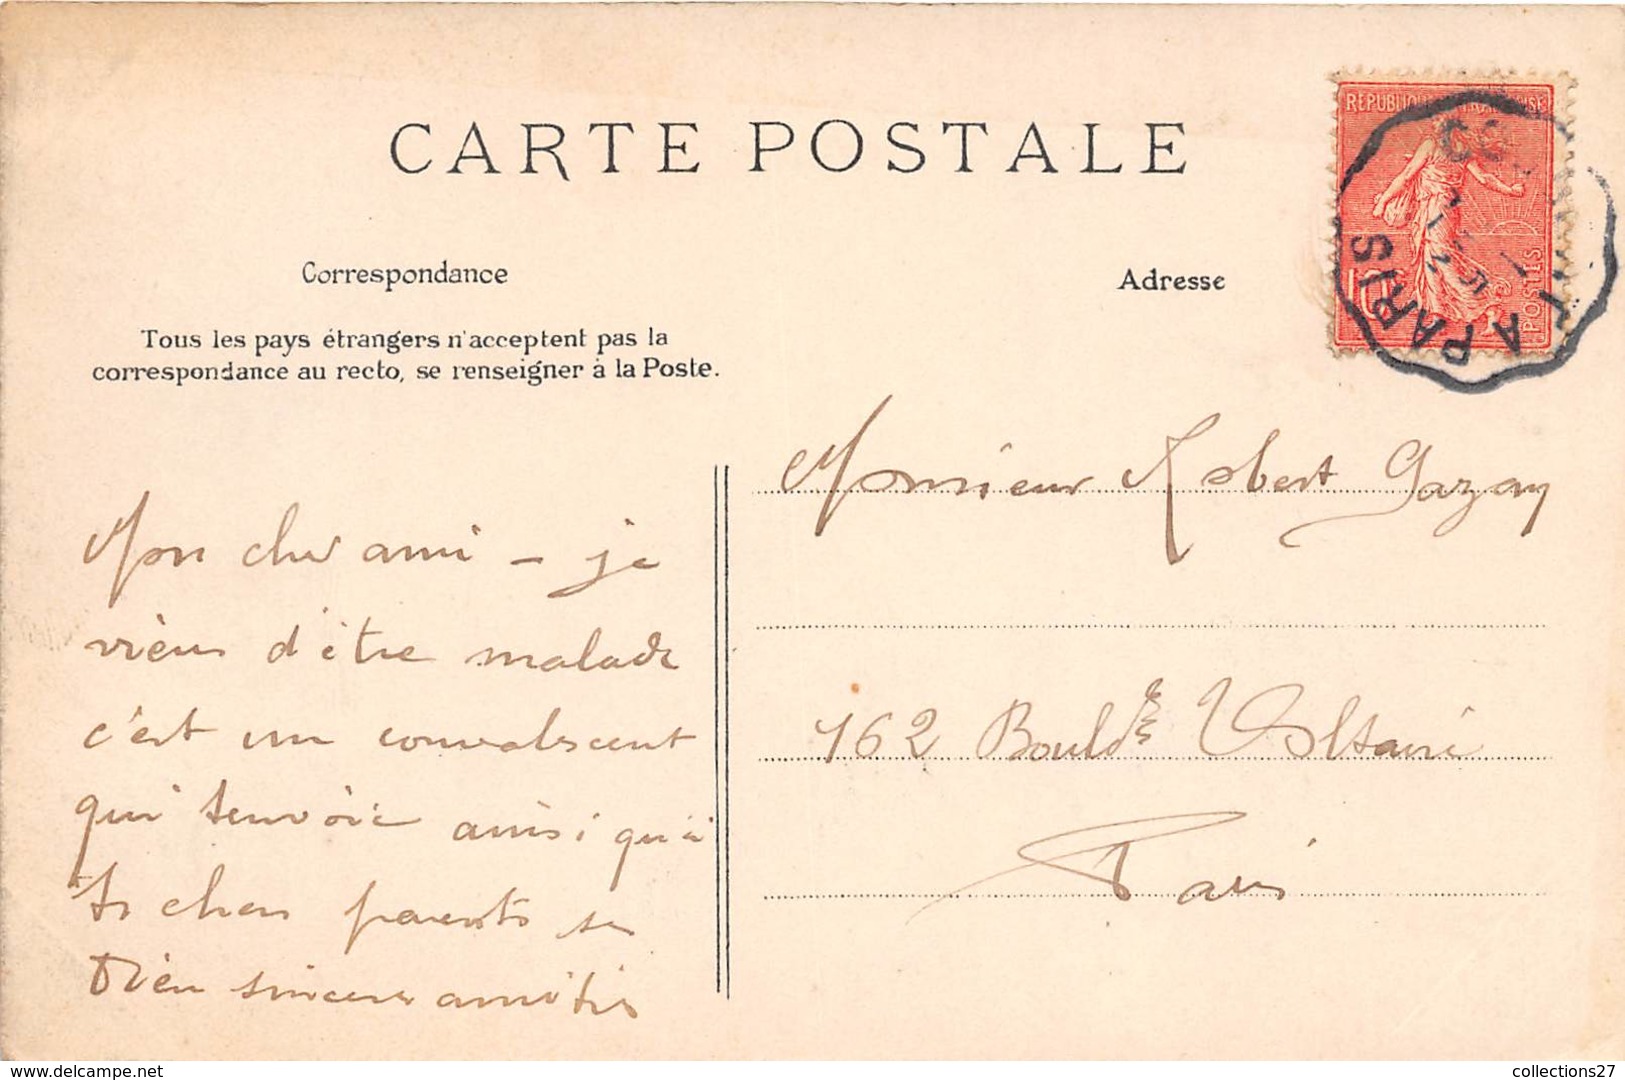 CARTE POSTALE
RÉPUBLIQUE FRANÇAISE
POSTES
10
A PARIS
Correspondance
Adresse
Tous les pays étrangers n'acceptent pas la
correspondance au recto, se renseigner à la Poste.
Monsieur Robert Gazay
162 Bould Voltaire
Paris
Mon cher ami - je
viens d'être malade
c'est un convalescent
qui t'envoie ainsi qu'à
ts chers parents ses
bien sincères amitiés
collections27